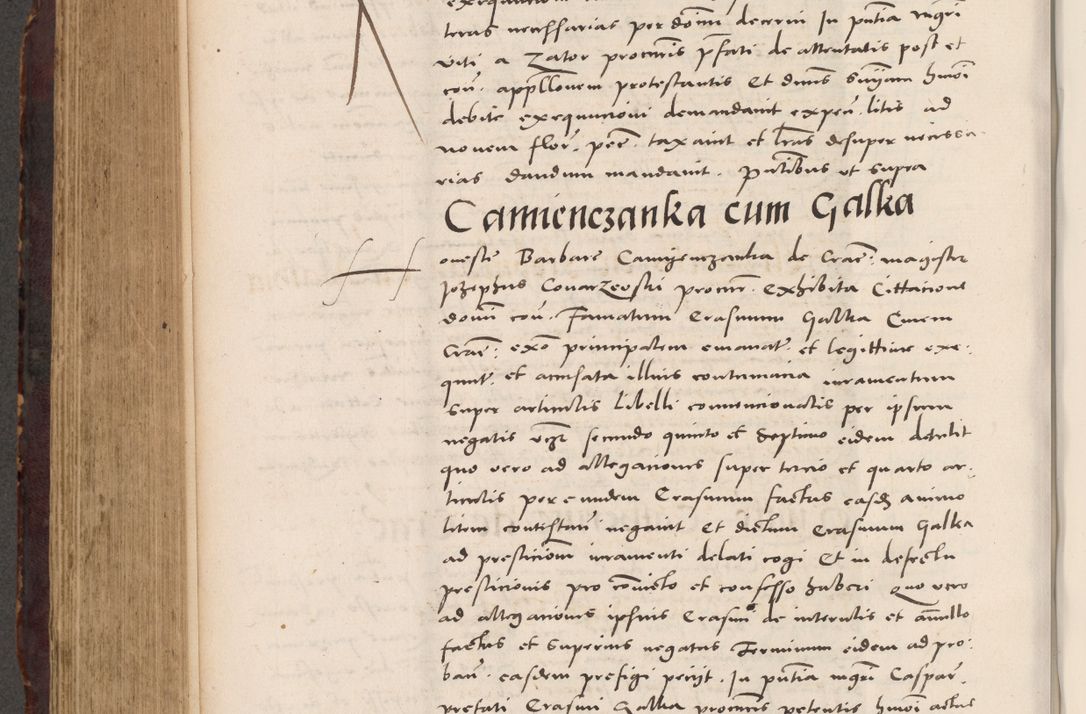 teras necessarias per domi decerni In pñtia mgri
viti a Zator procuris pfati de attentatis post et
coñ. appllonem protestantis Et dims sniam hmoi
debite exequucioni demandavit expeñ. litis ad
novem flor. peč. taxavit et lras desuper necessa-
rias dandum mandavit. Pñtibus ut supra
Camienczanka cum Galka
oneste Barbare Camyenczanka de Crač. magister
Jozephus Convarzewski procur. exhibita Cittacione
domi coñ. Famatum Erasmum Galka Civem
Crač. exõ principalem emanat. et legittime exe-
quut. et accusata illius contumacia iuramentum
super articulis libelli convencionalis per ipsum
negatis vcz secundo quinto et septimo eidem detulit
quo vero ad allegaciones super tercio et quarto ar-
ticulis per eundem Erasmum factas easdz animo
litem contestan negavit Et dictum Erasmum Galka
ad presticiom iuramenti delati cogi Et in defectu
presticionis pro convicto et confesso haberi quo vero
ad allegaciones ipsius Erasmi de interulis et annullo
factas et superius negatas Terminum eidem ad pro-
ban. easdem prefigi periit. In pñtia mgri Caspar.
prefati Erasmi Galka procuris petentis hmoi actus